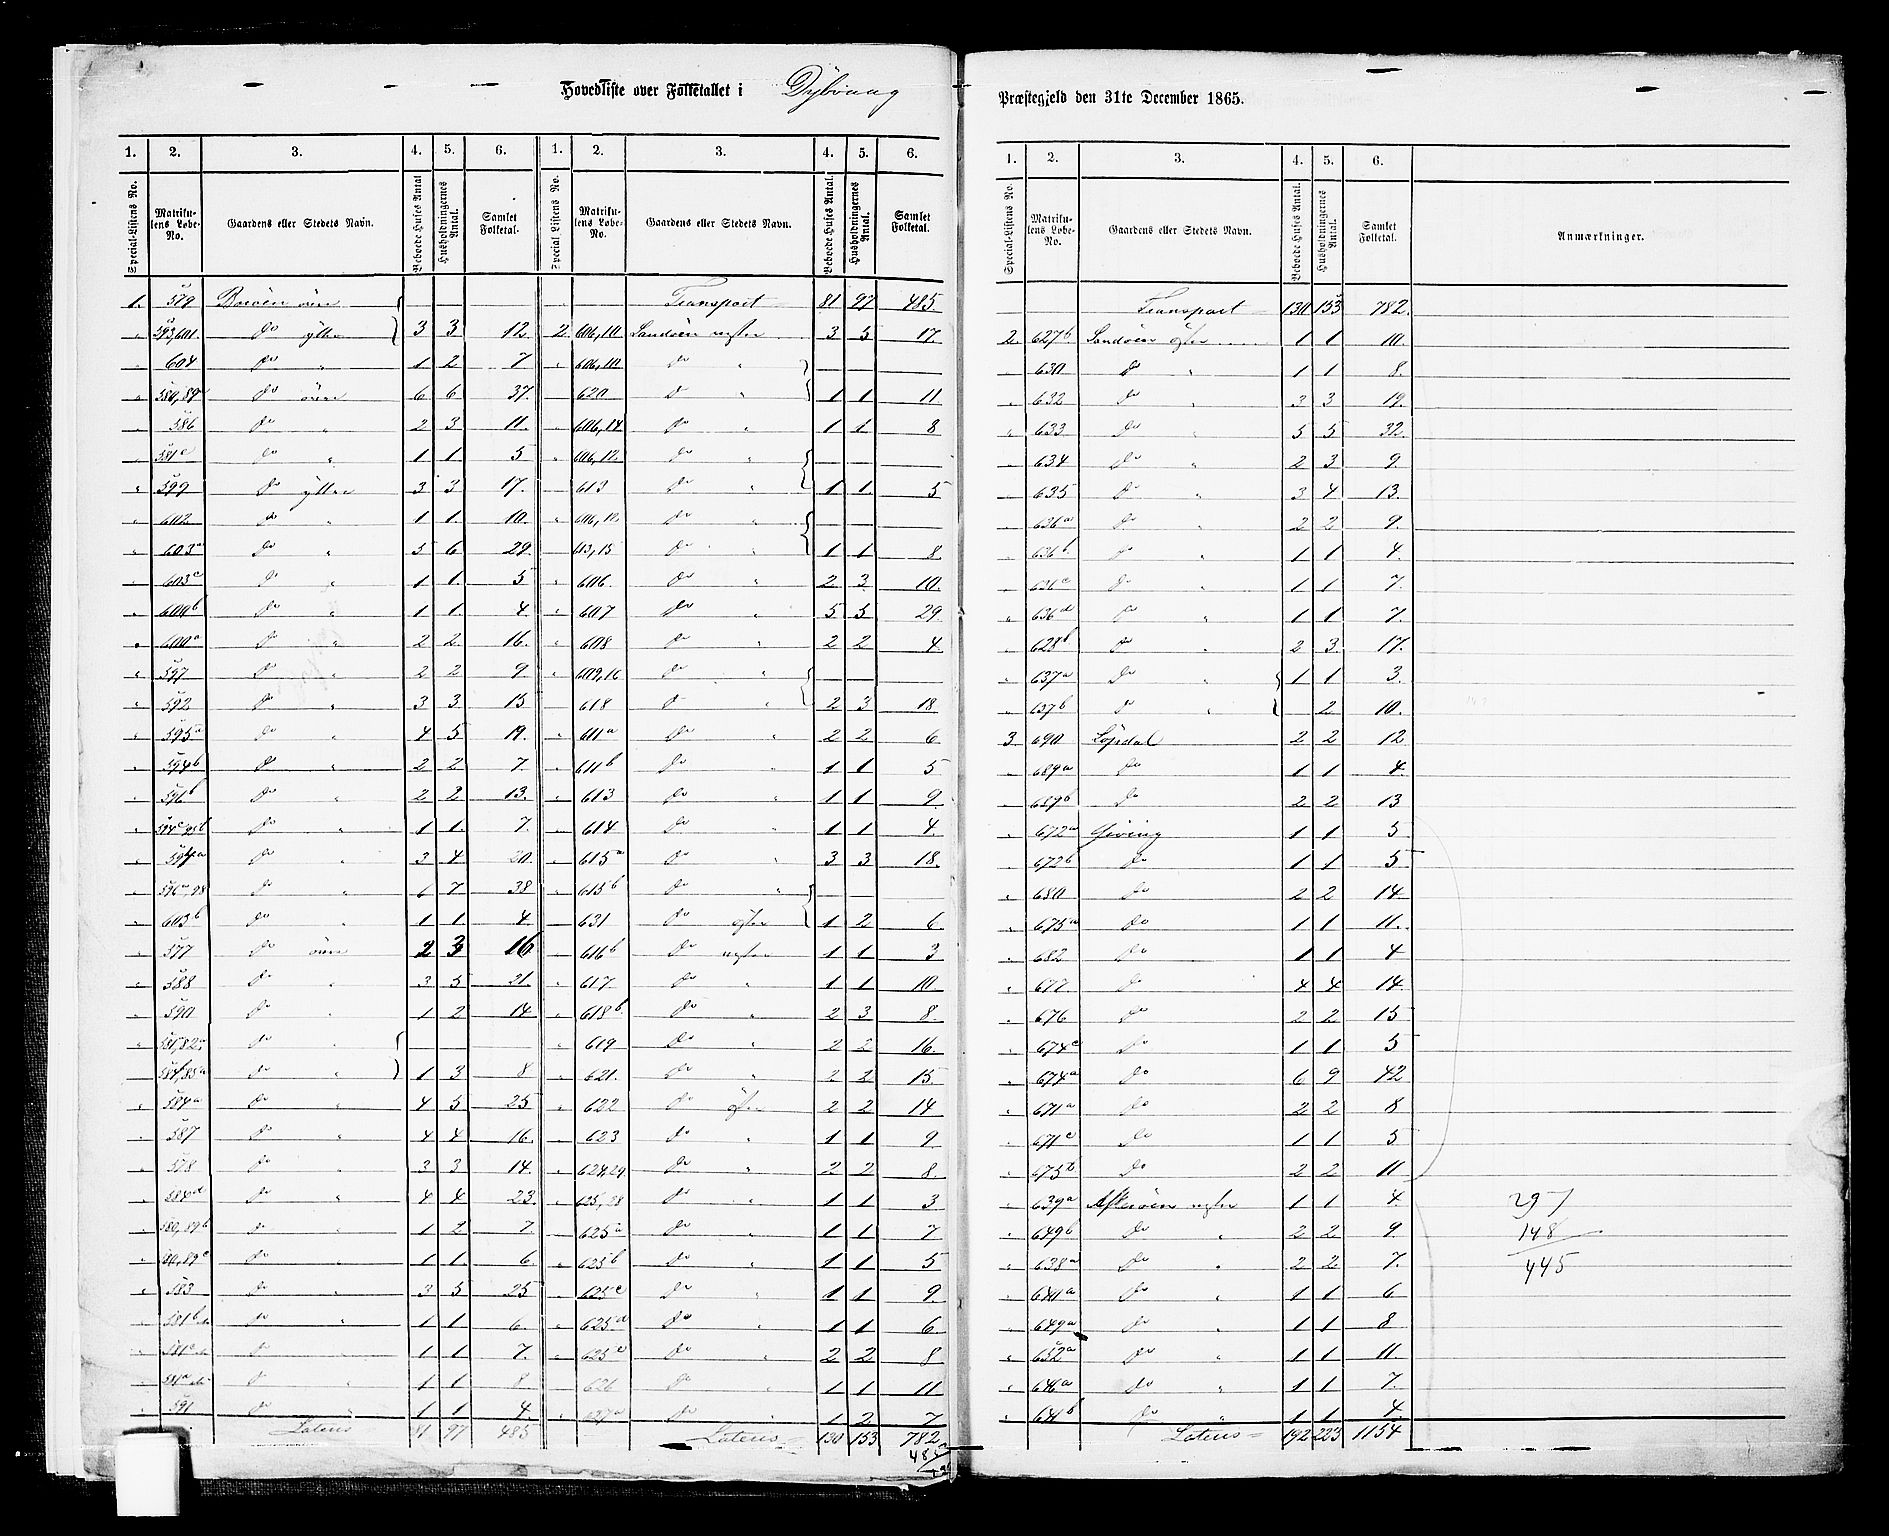 Hovedliste over Folketallet i Dybvaag
Præstegjeld den 31te December 1865.
1. 2. 3. 4. 5. 6. 1. 2. 3. 4. 5. 6.
Special-Listens No. Matrikulens Løbe-No. Gaardens eller Stedets Navn. Beboede Huses Antal Husholdningernes Antal. Samlet Folketal. Special Listens No. Matrikulens Løbe-No. Gaardens eller Stedets Navn. Beboede Huses Antal. Husholdningernes Antal. Samlet Folketal.
1. 579 Borøen
593,601 do ytter 3 3 12
604 do " 1 2 7
580,89 do 6 6 37
586 do " 2 3 11
581c do " 1 1 5
599 do ytter 3 3 17
602 do " 1 1 10
603a do " 5 6 29
603c do " 1 1 5
600b do " 1 1 4
600a do " 2 2 16
597 do " 2 2 9
592 do " 3 3 15
595a do " 4 5 19
594b do " 2 2 7
596b do " 2 2 13
594c do " 1 1 7
594a do " 3 4 20
do " 6 7 38
603b do " 1 1 4
577 do 2 3 16
588 do " 3 5 21
590 do " 1 2 14
581,82 do "
do " 1 3 8
584a do " 4 5 25
587 do " 4 4 16
578 do " 3 3 14
584d do " 4 4 23
580,89b do " 1 2 7
89c do " 1 1 6
583 do " 3 5 25
581b do " 1 1 6
do " 1 1 7
do " 1 1 8
591 do " 1 1 4
Lateris 81 97 485
Transport 81 97 485
2. 606,10 Sandøen 3 5 17
606,10 do "
620 do " 1 1 11
606,14 do " 1 1 8
606,12 do "
613 do " 1 1 5
606,12 do "
613,15 do " 1 1 8
606 do " 2 3 10
607 do 5 5 29
608 do " 2 2 4
609,16 do "
618 do " 2 3 18
611a do " 2 2 6
611b do " 1 1 5
613 do " 1 1 9
614 do " 1 1 4
615a do " 3 3 18
615b do "
631 do 1 2 6
616b do 1 1 3
617 do " 1 1 10
618b do " 2 3 8
619 do " 2 2 16
621 do " 2 2 15
622 do 2 2 14
623 do " 1 1 9
624,29 do " 2 2 8
625,28 do " 1 1 3
625a do " 1 1 7
625b do " 1 1 5
625c do " 1 1 9
625d do " 1 1 6
625e do " 2 2 8
626 do " 1 1 11
627a do 1 2 7
Lateris 130 153 782
1. 2. 3. 4. 5. 6.
Special-Listens No. Matrikulens Løbe-No. Gaardens eller Stedets Navn. Beboede Huses Antal. Husholdningernes Antal. Samlet Folketal. Anmærkninger.
Transport 130 153 782
2. 627b Sandøen 1 1 10
630 do " 1 1 8
632 do " 3 3 19
633 do " 5 5 32
634 do " 2 3 9
635 do " 3 4 13
636a do " 2 2 9
636b do " 1 1 4
do " 1 1 7
636d do " 1 1 7
628b do " 2 3 17
637a do " 1 1 3
637b do " 2 10
3 690 2 2 12
689a do 1 1 4
689b do 2 2 13
672a Gjeving 1 1 5
672b do 1 1 5
680 do 2 2 14
675a do 1 1 11
682 do 1 1 4
677 do 4 4 14
676 do 2 2 15
674c do 1 1 5
674a do 6 9 42
671a do 2 2 8
671c do 1 1 5
675b do 2 2 11
639a Askerøen 1 1 4
649b do " 2 2 9
638a do " 2 2 7
641a do " 1 1 6
649a do " 1 1 8
652a do " 1 1 11
646a do " 1 1 7
641b do " 1 1 4
Lateris 192 223 1154
297
148
445